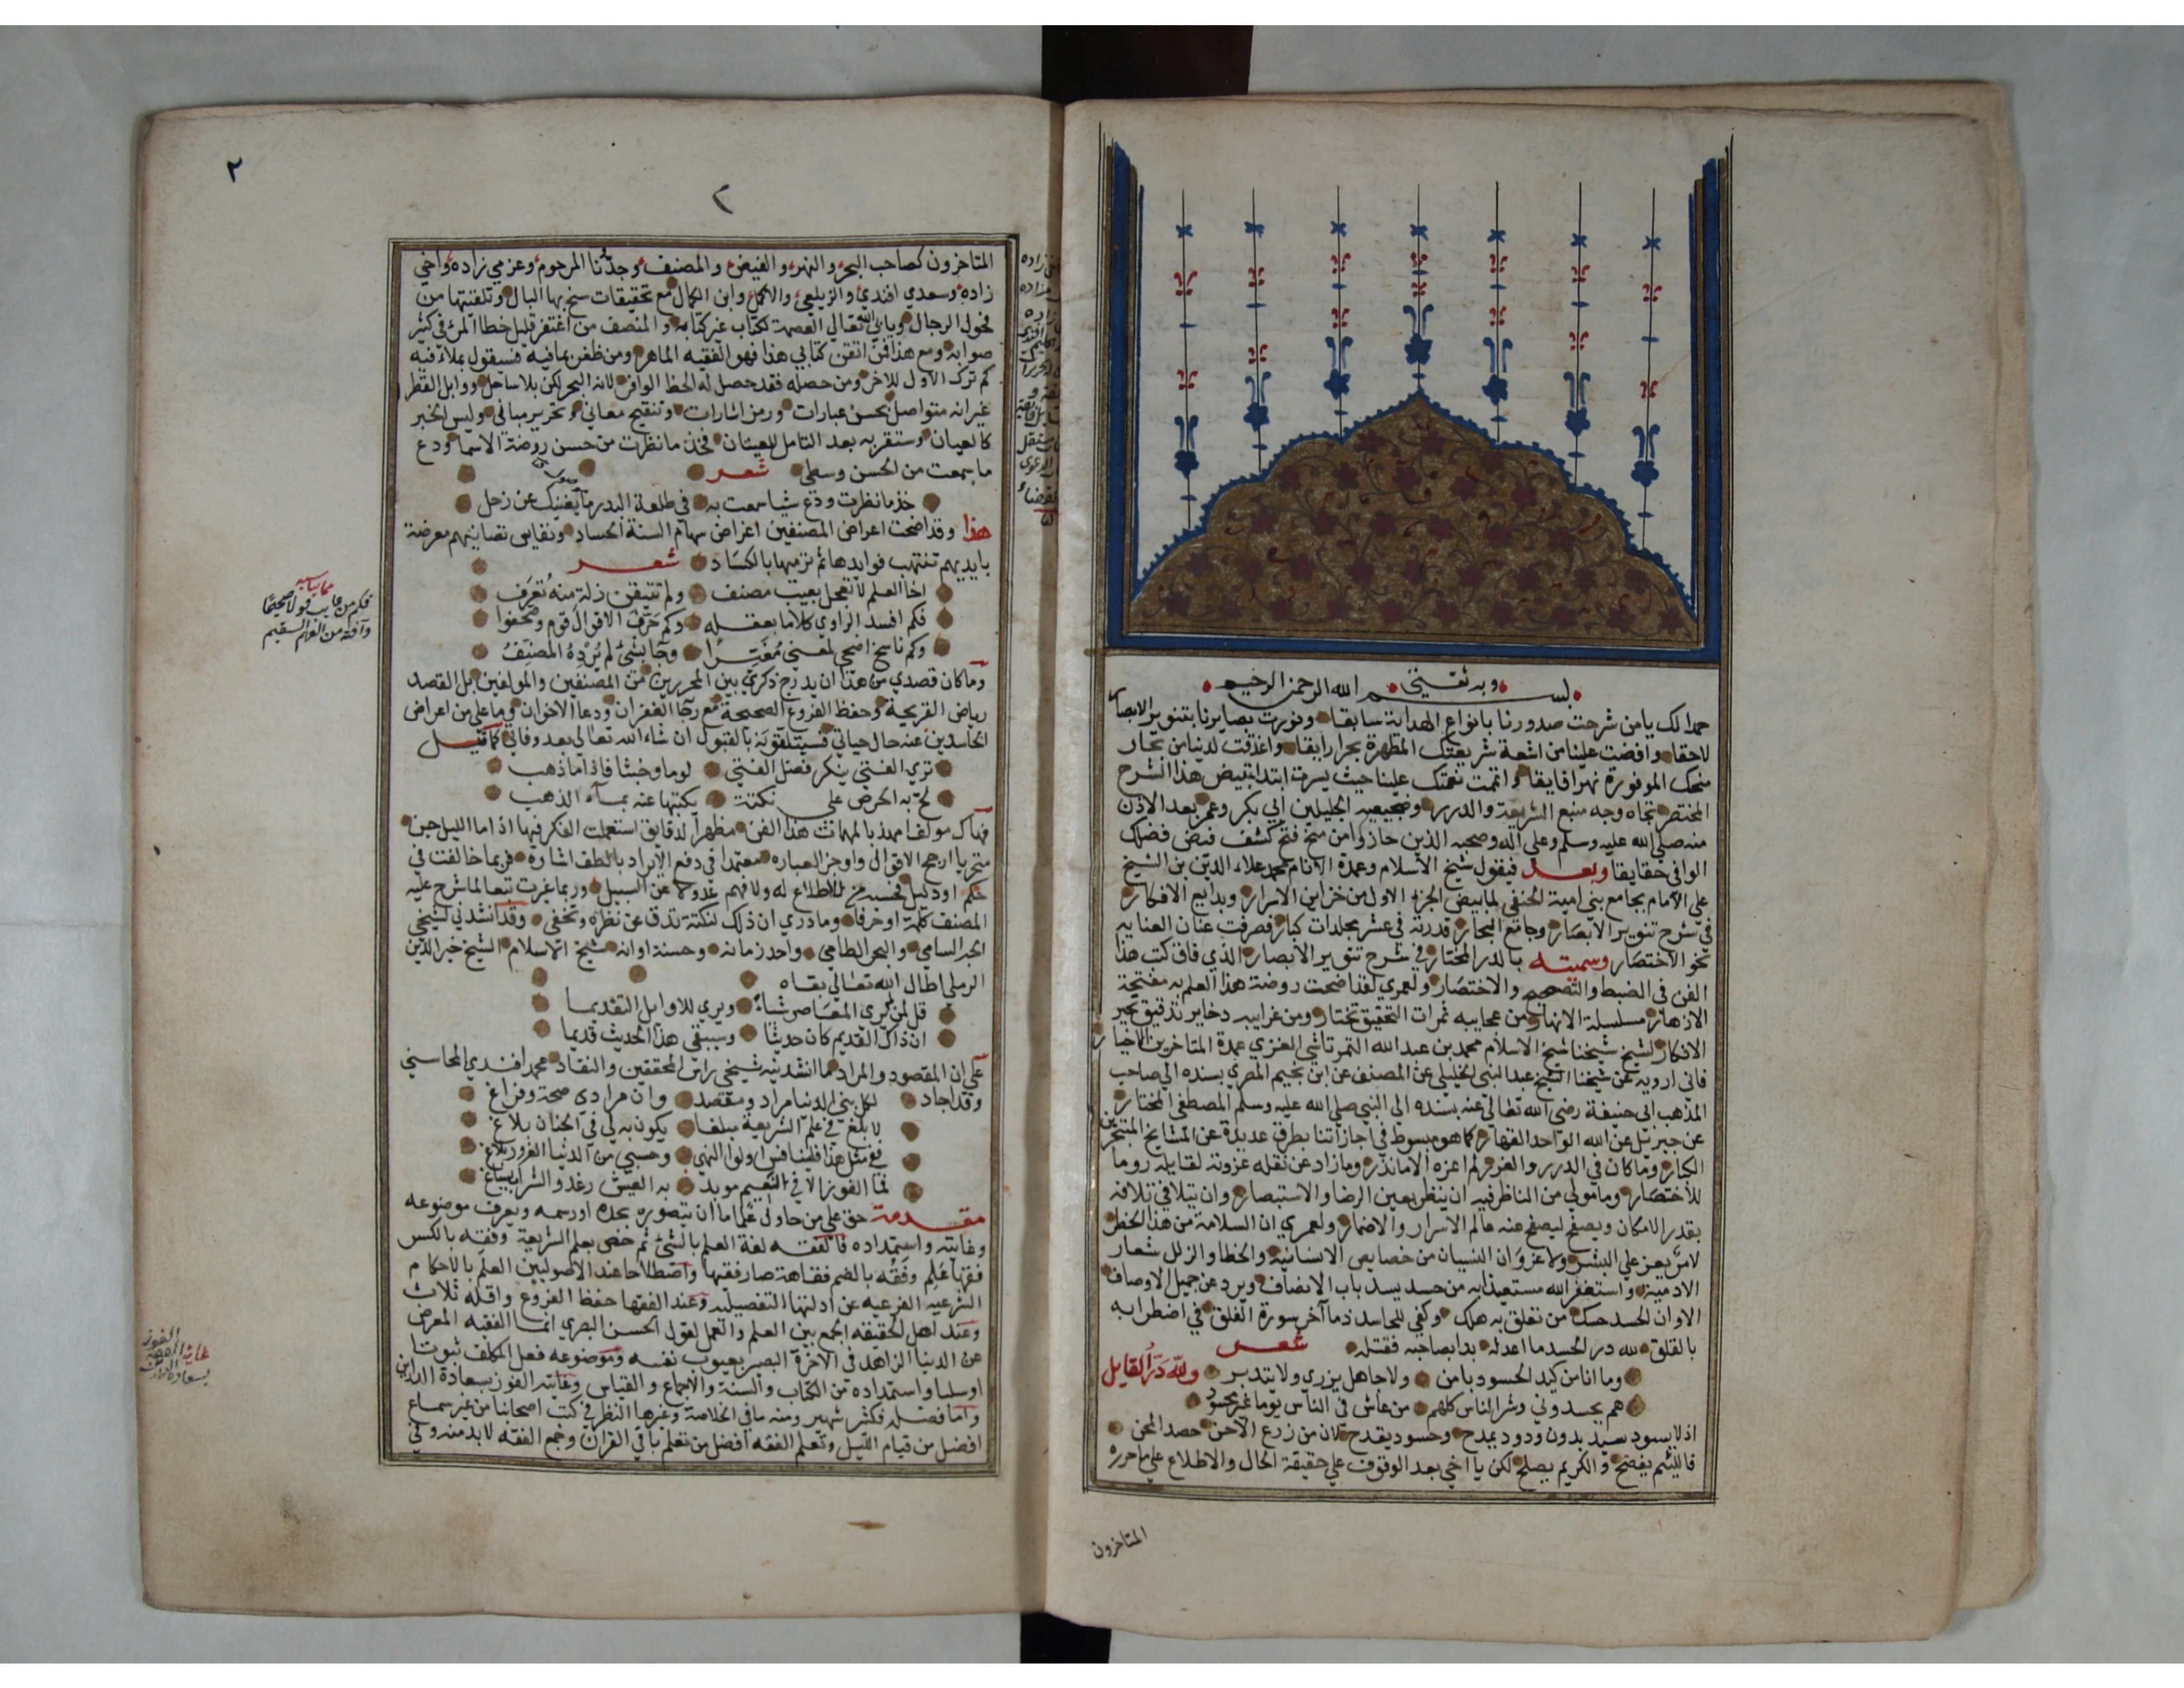 وبه ثقتي
بسم الله الرحمن الرحيم
حمدا لك يا من شرحت صدورنا بانواع الهداية سابقا ونورت بصايرنا بتنوير الابصار
لاحقا وافضت علينا من اشعة شريعتك المطهرة بحرا رايقا واغدقت لدينا من بحار
منحك الموفورة نهرا فايقا واتممت نعمتك علينا حيث يسرت ابتدا تبييض هذا الشرح
المختصر تجاه وجه منبع الشريعة والدرر وضجيعيه الجليلين ابي بكر وعمر بعد الاذن
منه صلي الله عليه وسلم وعلي اله وصحبه الذين حازوا من منح فتح كشف فيض فضلك
الوافي حقايقا وبعد فيقول شيخ الاسلام وعمدة الانام محمد علاء الدين بن الشيخ
علي الامام بجامع بني امية الحنفي لما بيض الجزء الاول من خزاين الاسرار وبدايع الافكار
في شرح تنوير الابصار وجامع البحار قدرته في عشر مجلدات كبار فصرفت عنان العناية
نحو الاختصار وسميته بالدر المختار في شرح تنوير الابصار الذي فاق كتب هذا
الفن في الضبط والتصحيح والاختصار ولعمري لقد اضحت روضة هذا العلم به مفتحة
الازهار مسلسلة الانهار من عجايبه ثمرات التحقيق تختار ومن غرايبه دخاير تدقيق تحير
الافكار لشيخ شيخنا شيخ الاسلام محمد بن عبد الله التمرتاشي الغزي عمدة المتاخرين الاخيار
فاني ارويه عن شيخنا الشيخ عبد النبي الخليلي عن المصنف عن ابن نجيم المصري بسنده الي صاحب
المذهب ابي حنيفة رضي الله تعالي عنه بسنده الى النبي صلي الله عليه وسلم المصطفي المختار
عن جبرئل عن الله الواحد القهار كما هو مبسوط في اجازاتنا بطرق عديدة عن المشايخ المتبحرين
الكبار وما كان في الدرر والغرر لم اعزه الا ما ندر وما زاد عن نقله عزوته لقايله روما
للاختصار ومامولي من الناظر فيه ان ينظر بعين الرضا والاستبصار وان يتلافي تلافه
بقدر الامكان ويصفح ليصفح عنه عالم الاسرار والاضمار ولعمري ان السلامة من هذا الخطر
لامر يعز علي البشر ولا غرو ان النسيان من خصايص الانسانية والخطا والزلل شعار
الادمية واستغفر الله مستعيذا به من حسد يسد باب الانصاف ويرد عن جميل الاوصاف
الا وان الحسد حسك من تعلق به هلك وكفي للحاسد ذما آخر سورة الفلق في اضطرابه
بالقلق لله در الحسد ما اعدله بدا بصاحبه فقتله شعر
وما انا من كيد الحسود بامن ولا جاهل يزري ولا يتدبر ولله در القايل
هم يحسدوني وشر الناس كلهم من عاش في الناس يوما غير محسود
اذ لا يسود سيد بدون ودود يمدح وحسود يقدح لان من زرع الاحن حصد المحن
فاللئيم يفضح والكريم يصلح لكن يا اخي بعد الوقوف علي حقيقة الحال والاطلاع علي ما حرره
المتاخرون
٢
٢
المتاخرون كصاحب البحر والنهر والفيض والمصنف وجدنا المرحوم وعزمي زاده واخي
زاده وسعدي افندي والزيلعي والاكمل وابن الكمال مع تحقيقات سنح بها البال وتلقيتها من
فحول الرجال ويابي الله تعالي العصمة لكتاب غير كتابه والمنصف من اغتفر قليل خطا المرء في كثير
صوابه ومع هذا فمن اتقن كتابي هذا فهو الفقيه الماهر ومن ظفر بما فيه فسيقول بملاء فيه
كم ترك الاول للاخر ومن حصله فقد حصل له الحظ الوافر لانه البحر لكن بلا ساحل ووابل القطر
غير انه متواصل بحسن عبارات ورمز اشارات وتنقيح معاني وتحرير مباني وليس الخبر
كالعيان وستقر به بعد التامل العينان فخذ ما نظرت من حسن روضة الاسما ودع
ما سمعت من الحسن وسلمي شعر
خذ ما نظرت ودع شيا سمعت به في طلعة البدر ما يغنيك عن زحل
هذا وقد اضحت اعراض المصنفين اغراض سهام السنة الحساد ونفايس تصانيفهم معرضة
بايديهم تنتهب فوايدها ثم ترميها بالكساد شعر
اخا العلم لا تعجل بعيب مصنف ولم تتيقن زلة منه تعرف
فكم افسد الراوي كلاما بعقله وكم حرف الاقوال قوم وصحفوا
وكم ناسخ اضحي لمعني مغيرا وجا بشئ لم يرده المصنف
وما كان قصدي من هذا ان يدرج ذكري بين المحررين من المصنفين والمولفين بل القصد
رياض القريحة وحفظ الفروع الصحيحة مع رجا الغفران ودعا الاخوان وما علي من اعراض
الحاسدين عنه حال حياتي فسيتلقونه بالقبول ان شاء الله تعالي بعد وفاتي كما قيل
تري الفتي ينكر فضل الفتي لوما وخبثا فاذا ما ذهب
لج به الحرص علي نكتة يكتبها عنه بماء الذهب
فهاك مولفا مهذبا لمهمات هذا الفن مظهرا لدقايق استعملت الفكر فيها اذا ما الليل جن
متحريا ارجح الاقوال واوجز العباره معتمدا في دفع الايراد بالطف اشاره فربما خالفت في
حكم او دليل فحسبه من لا اطلاع له ولا فهم عدولا عن السبيل وربما غيرت تبعا لما شرح عليه
المصنف كلمة او حرفا وما دري ان ذلك لنكتة تدق عن نظره وتخفي وقد انشدني شيخي
الحبر السامي والبحر الطامي واحد زمانه وحسنة اوانه شيخ الاسلام الشيخ خير الدين
الرملي اطال الله تعالي بقاه
قل لمن لم يري المعاصر شياء ويري للاوايل التقديما
ان ذاك القديم كان حديثا وسيبقي هذا الحديث قديما
علي ان المقصود والمراد ما انشدنيه شيخي راس المحققين والنقاد محمد افندي المحاسني
وقد اجاد لكل بني الدنيا مراد ومقصد وان مرادي صحة وفراغ
لابلغ في علم الشريعة مبلغا يكون به لي في الجنان بلاغ
ففي مثل هذا فلينافس اولوا النهي وحسبي من الدنيا الغرور بلاغ
فما الفوز الا في النعيم موبد به العيش رغد والشراب يساغ
مقدمة حق علي من حاول علما ما ان يتصوره بحده او رسمه ويعرف موضوعه
وغايته واستمداده فالفقه لغة العلم بالشئ ثم خص بعلم الشريعة وفقه بالكسر
فقها علم وفقه بالضم فقاهة صار فقيها واصطلاحا عند الاصوليين العلم بالاحكام
الشرعية الفرعيه عن ادلتها التفصيليه وعند الفقها حفظ الفروع واقله ثلاث
وعند اهل الحقيقه الجمع بين العلم والعمل لقول الحسن البصري انما الفقيه المعرض
عن الدنيا الزاهد في الاخرة البصير بعيوب نفسه وموضوعه فعل المكلف ثبوتا
او سلبا واستمداده من الكتاب والسنة والاجماع والقياس وغايته الفوز بسعادة الدارين
واما فضله فكثير شهير ومنه ما في الخلاصة وغيرها النظر في كتب اصحابنا من غير سماع
افضل من قيام الليل وتعلم الفقه افضل من تعلم باقي القران وجمع الفقه لا بد منه وفي
فكم من عايب قولا صحيحا
وآفته من الفهم السقيم